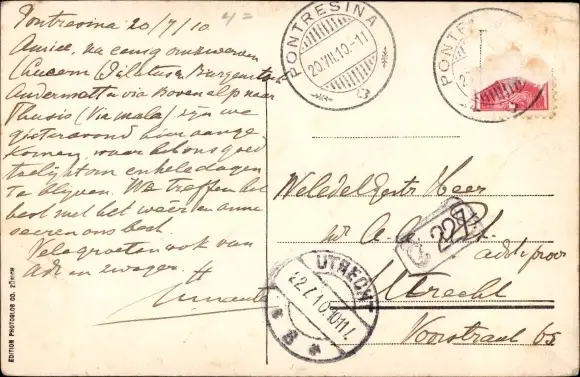 Pontresina 20/7/10
Amice, na eenig omzwerven
(Lucern (Pilatus en Burgenstock
Andermatt en via Boven alp naar
Thusis (Via mala) zijn we
gisteravond hier aange
komen, waar het ons goed
toelijkt om enkele dagen
te blijven. We treffen het
best met het weer en amu
seeren ons best.
Vele groeten ook van
Ad en zwager.
EDITION PHOTOGLOB CO. ZÜRICH
PONTRESINA
20.VII.10-11
PONTR
WelEdelGestr Heer
227
Utrecht
Voorstraat 65
UTRECHT
22.7.10.10-11V.
* 8 *